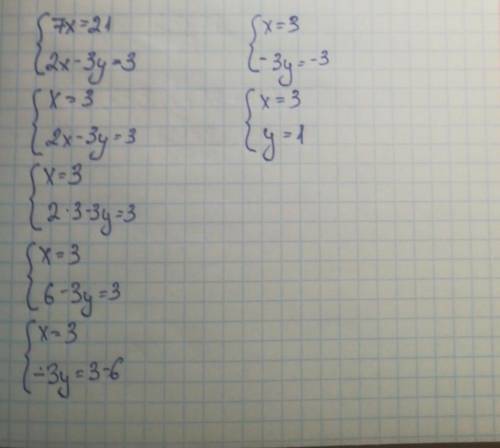 7x=21
2x-3y=3
x=3
2x-3y=3
x=3
2·3-3y=3
x=3
6-3y=3
x=3
-3y=3-6
x=3
-3y=-3
x=3
y=1